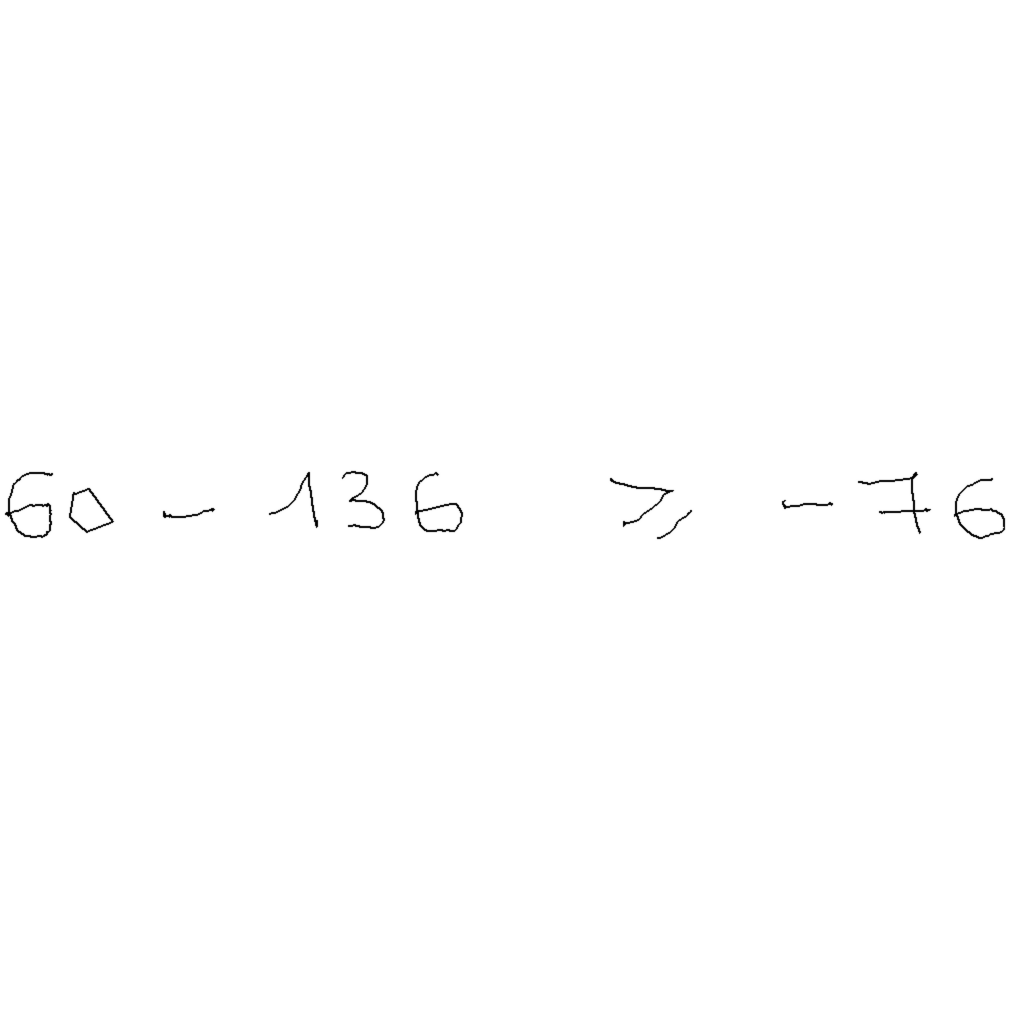 60 - 136 ⩾ -76